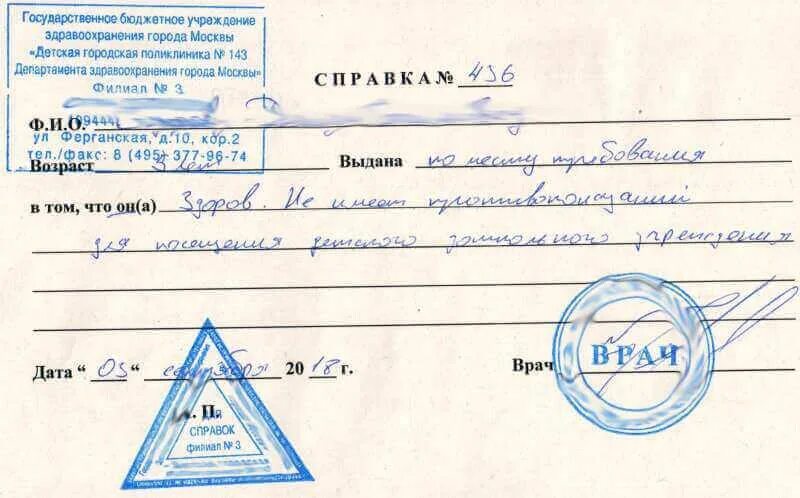 Государственное бюджетное учреждение
здравоохранения города Москвы
«Детская городская поликлиника № 143
Департамента здравоохранения города Москвы»
Филиал № 3
СПРАВКА № 436
109444
Ф.И.О.
ул Ферганская, д.10, кор.2
тел./факс: 8 (495) 377-96-74
Возраст 3 лет Выдана по месту требования
в том, что он(а) Здоров. Не имеет противопоказаний
для посещения детского дошкольного учреждения
Дата " 03 " сентября 2018 г. Врач
ВРАЧ
М. П.
ДЛЯ
СПРАВОК
филиал № 3